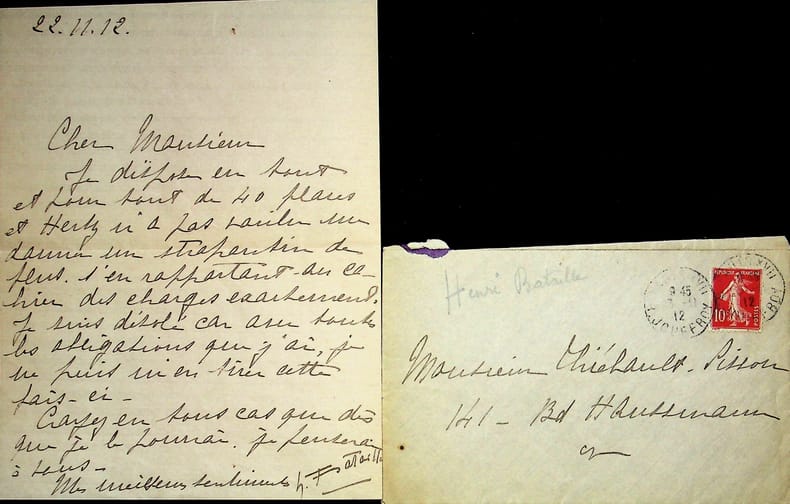 22.11.12.
Cher Monsieur
Je dispose en tout
et pour tout de 40 places
et Hertz n'a pas voulu me
donner un strapontin de
plus. s'en rapportant au ca-
hier des charges exactement.
Je suis désolé car avec toutes
les obligations que j'ai, je
ne puis m'en tirer cette
fois-ci -
Croyez en tous cas que dès
que je le pourrai, je penserai
à vous -
Mes meilleurs sentiments H. Bataille
Henri Bataille
9 45
12
R. JOUFFROY
10
POSTES
Monsieur Thiébault-Sisson
141 - Bd Haussmann